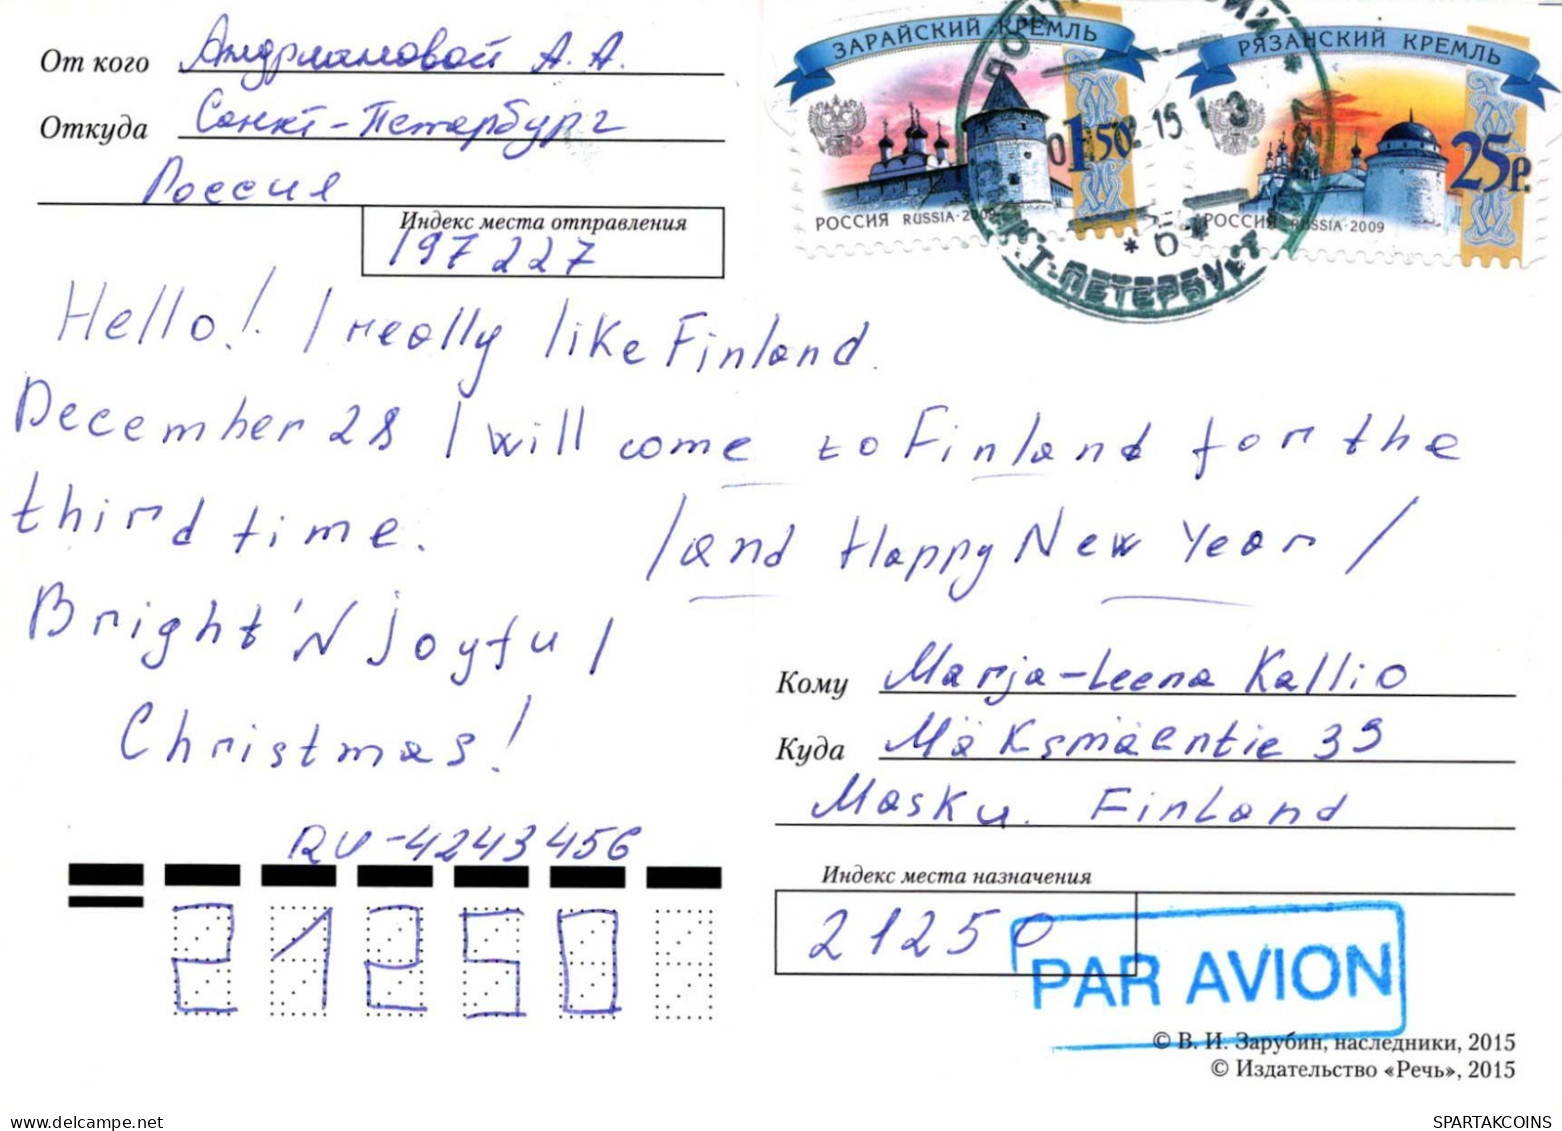 От кого Андриановой А. А.
Откуда Санкт-Петербург
Россия
Индекс места отправления
197227
ЗАРАЙСКИЙ КРЕМЛЬ
1.50
РОССИЯ RUSSIA·2009
РЯЗАНСКИЙ КРЕМЛЬ
25Р.
РОССИЯ RUSSIA·2009
15 13
* 6 *
Hello! I really like Finland.
December 28 I will come to Finland for the
third time. /and Happy New Year/
Bright 'N joyful
Christmas!
RU-4243456
21250
Кому Marja-Leena Kallio
Куда Mäksmäentie 39
Masku. Finland
Индекс места назначения
21250
PAR AVION
© В. И. Зарубин, наследники, 2015
© Издательство «Речь», 2015
my.delcampe.net
SPARTAKCOINS